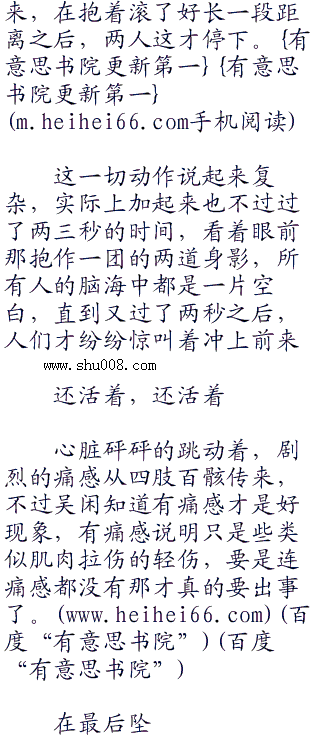 来，在抱着滚了好长一段距
离之后，两人这才停下。{有
意思书院更新第一}{有意思
书院更新第一}
(m.heihei66.com手机阅读)
这一切动作说起来复
杂，实际上加起来也不过过
了两三秒的时间，看着眼前
那抱作一团的两道身影，所
有人的脑海中都是一片空
白，直到又过了两秒之后，
人们才纷纷惊叫着冲上前来
www.shu008.com
还活着，还活着
心脏砰砰的跳动着，剧
烈的痛感从四肢百骸传来，
不过吴闲知道有痛感才是好
现象，有痛感说明只是些类
似肌肉拉伤的轻伤，要是连
痛感都没有那才真的要出事
了。(www.heihei66.com)(百
度“有意思书院”)(百度
“有意思书院”)
在最后坠